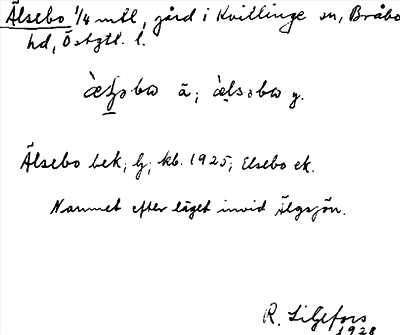 Älsebo 1/4 mtl, gård i Kvillinge sn, Bråbo
hd, Östgtl. l.
ä; àlsəbω y.
Älsebo bek; lj; kb. 1925; Elsebo ek.
Namnet efter läget invid Älgsjön.
R. Liljefors
1928